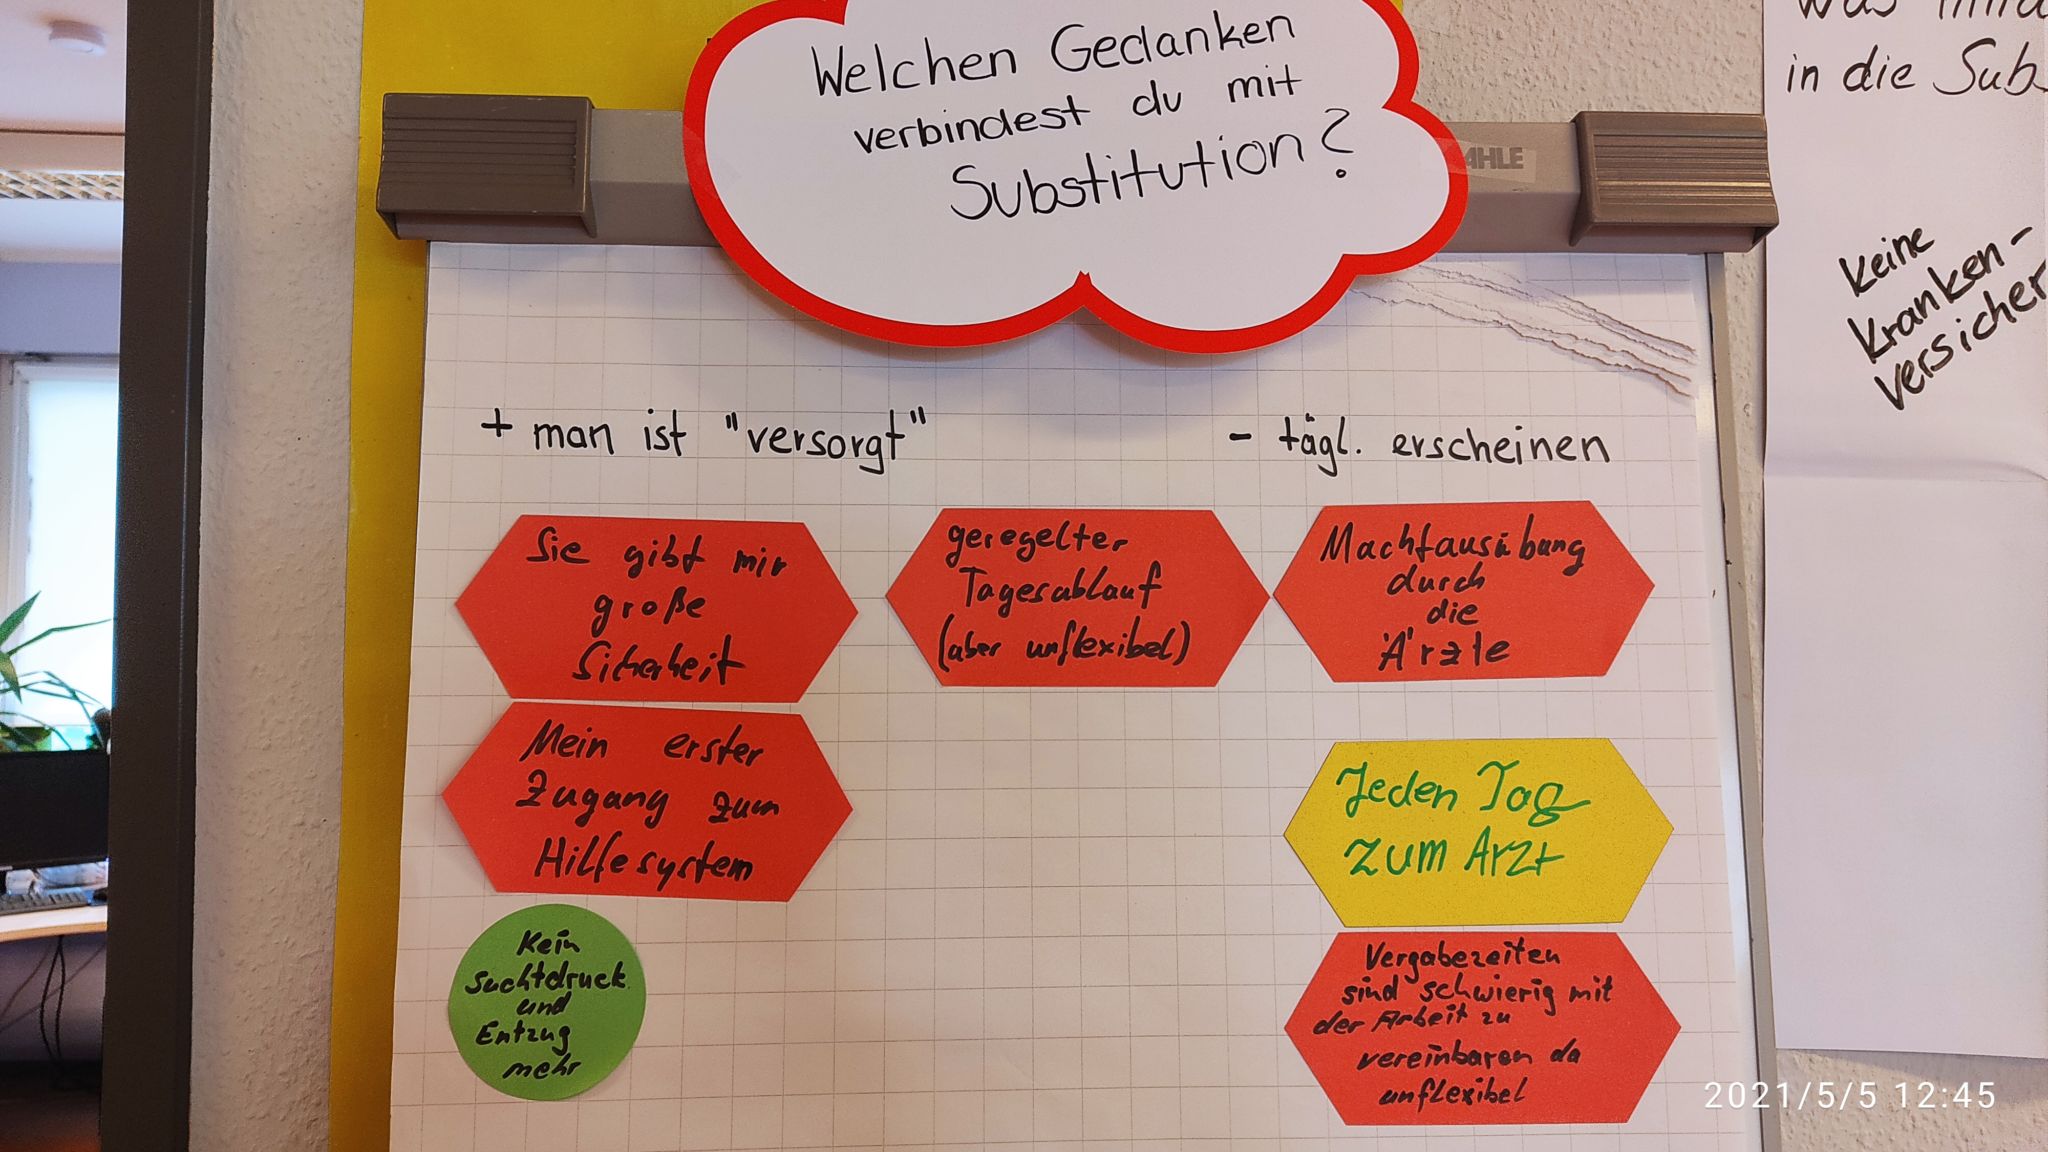 Welchen Gedanken
verbindest du mit
Substitution?
AHLE
in die Sub
keine
Kranken-
versicher
+ man ist "versorgt"
- tägl. erscheinen
Sie gibt mir
große
Sicherheit
geregelter
Tagesablauf
(aber unflexibel)
Machtausübung
durch
die
Ärzte
Mein erster
Zugang zum
Hilfesystem
Jeden Tag
zum Arzt
Kein
Suchtdruck
und
Entzug
mehr
Vergabezeiten
sind schwierig mit
der Arbeit zu
vereinbaren da
unflexibel
2021/5/5 12:45